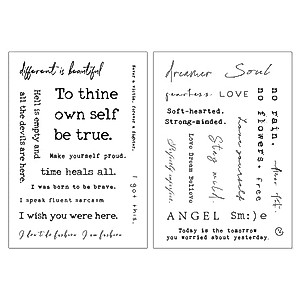 different is beautiful
Hell is empty and
all the devils are here.
To thine
own self
be true.
Never a victim. Forever a fighter.
Make yourself proud.
time heals all.
I was born to be brave.
I speak fluent sarcasm
I got this.
I wish you were here.
I don't do fashion I am fashion
dreamer Soul
fearless. LOVE
Soft-hearted.
Strong-minded.
no rain.
no flowers.
Perfectly imperfect
Love Dream Believe
Stay wild.
Love yourself
free
ANGEL Sm:)e
Today is the tomorrow
you worried about yesterday.